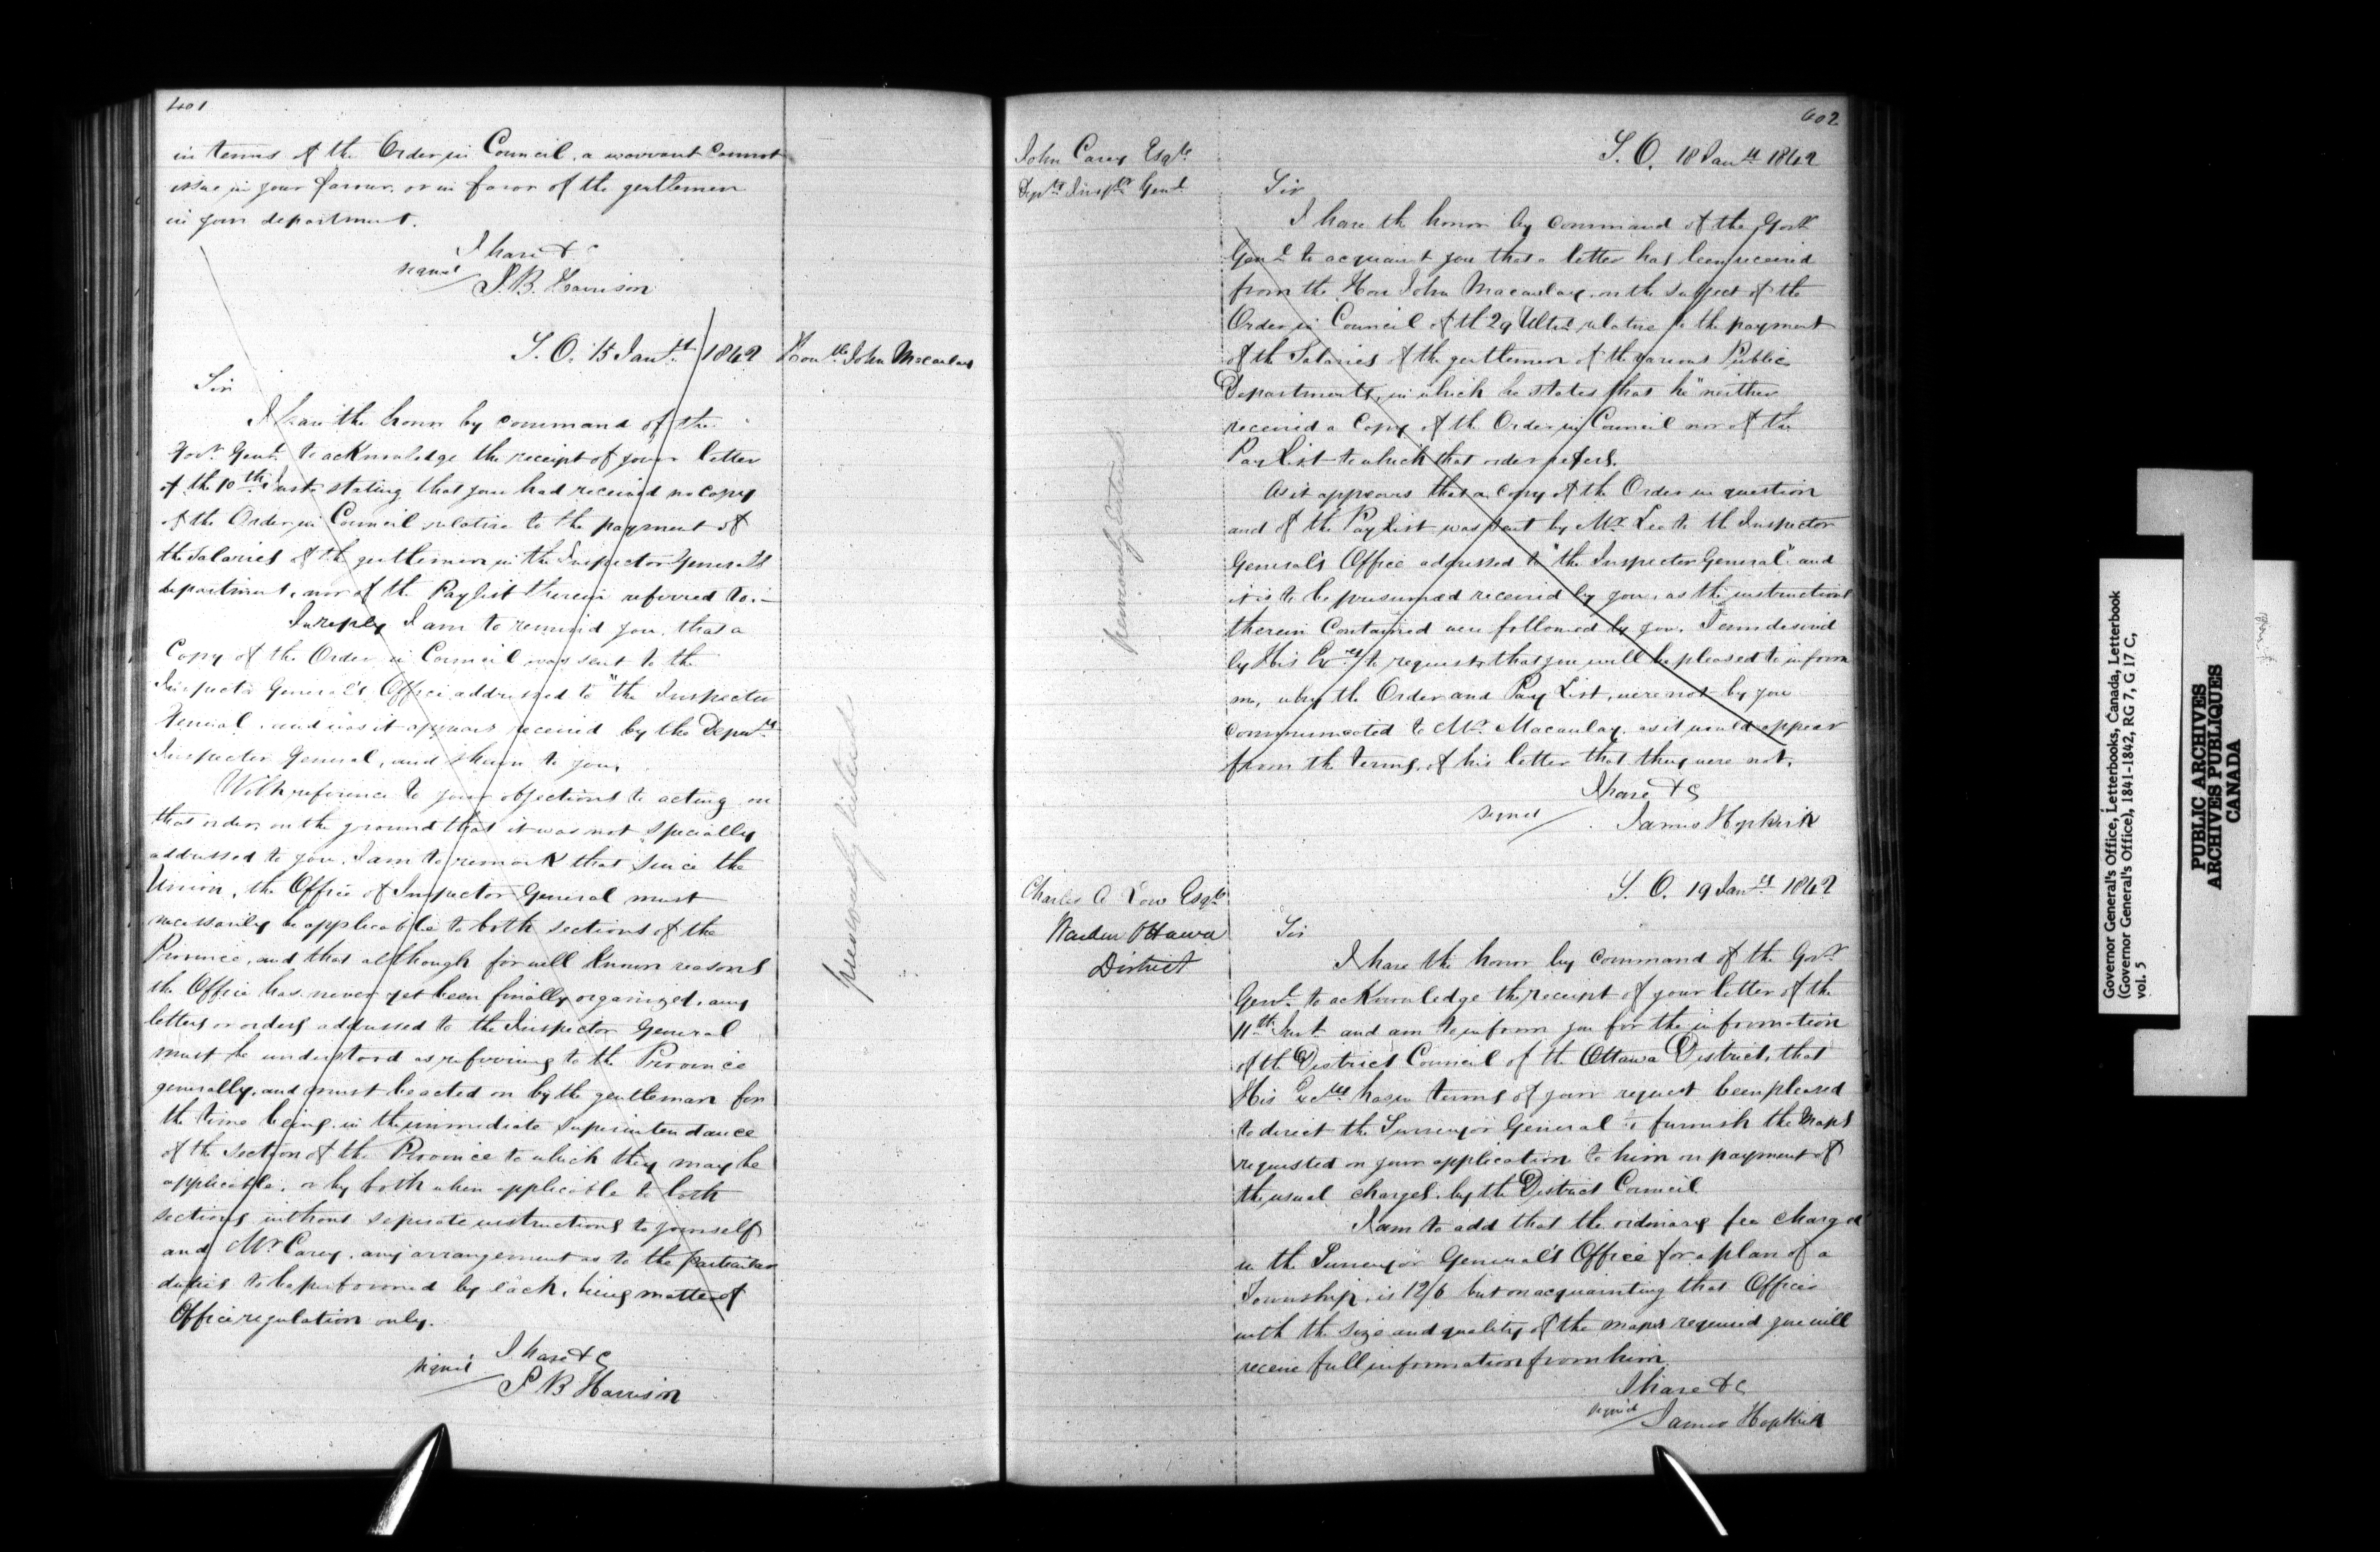 401
in terms of the Order in Council, a warrant cannot
issue in your favour, or in favor of the gentlemen
in your department.
I have &c
signed
S. B. Harrison
S. O. 15 Jany 1842
Honble John Macaulay
Sir
I have the honor by command of the
Govr Genl to acknowledge the receipt of your letter
of the 10th Inst. stating that you had received no copy
of the Order in Council relative to the payment of
the Salaries of the gentlemen in the Inspector General's
department, nor of the Paylist therein referred to.—
In reply I am to remind you, that a
Copy of the Order in Council was sent to the
Inspector General's Office addressed to "the Inspector
General, and was it appears received by the Deputy
Inspector General, and shewn to you.
With reference to your objections to acting on
that order, on the ground that it was not specially
addressed to you, I am to remark that since the
Union, the Office of Inspector General must
necessarily be applicable to both sections of the
Province, and that although for well known reasons
the Office has never yet been finally organized, any
letters or orders addressed to the Inspector General
must be understood as referring to the Province
generally, and must be acted on by the gentleman for
the time being in the immediate superintendance
of the section of the Province to which they may be
applicable, or by both when applicable to both
sections without seperate instructions to yourself
and Mr Carey, any arrangement as to the particular
duties to be performed by each, being matter of
Office regulation only.
I have &c
signed
S B Harrison
previously listed
602
John Carey Esqre
Depty Inspr Genl
S. O. 18 Jany 1842
Sir
I have the honor by command of the Govr
Genl to acquaint you that a letter has been received
from the Hon John Macaulay, on the subject of the
Order in Council of th 29 Ulto relative to the payment
of the Salaries of the gentlemen of the various Public
Departments, in which he states that he "neither
received a Copy of the Order in Council nor of the
Pay List to which that order refers.
As it appears that a Copy of the Order in question
and of the Pay List was sent by Mr Lee to the Inspector
General's Office addressed to "the Inspector General" and
it is to be presumed received by you, as the instructions
therein Contained were followed by you, I am desired
by His Exy to request, that you will be pleased to inform
me, why the Order and Pay List, were not by you
communicated to Mr. Macaulay, as it would appear
from the terms of his letter that they were not.
I have &c
signed
James Hopkirk
previously listed
Charles A Low Esqre
Warden Ottawa
District
S. O. 19 Jany 1842
Sir
I have the honor by command of the Govr
Genl. to acknowledge the receipt of your letter of the
11th Inst and am to inform you for the information
of the District Council of the Ottawa District, that
His Excy has in terms of your request been pleased
to direct the Surveyor General to furnish the Maps
requested on your application to him on payment of
the usual charges by the District Council
I am to add that the ordinary fee charged
in the Surveyor General's Office for a plan of a
Township, is 12/6 but on acquainting that Officer
with the size and quality of the maps required you will
receive full information from him.
I have &c
signed
James Hopkirk
Governor General's Office, Letterbooks, Canada, Letterbook
(Governor General's Office), 1841-1842, RG 7, G 17 C,
vol. 5
PUBLIC ARCHIVES
ARCHIVES PUBLIQUES
CANADA